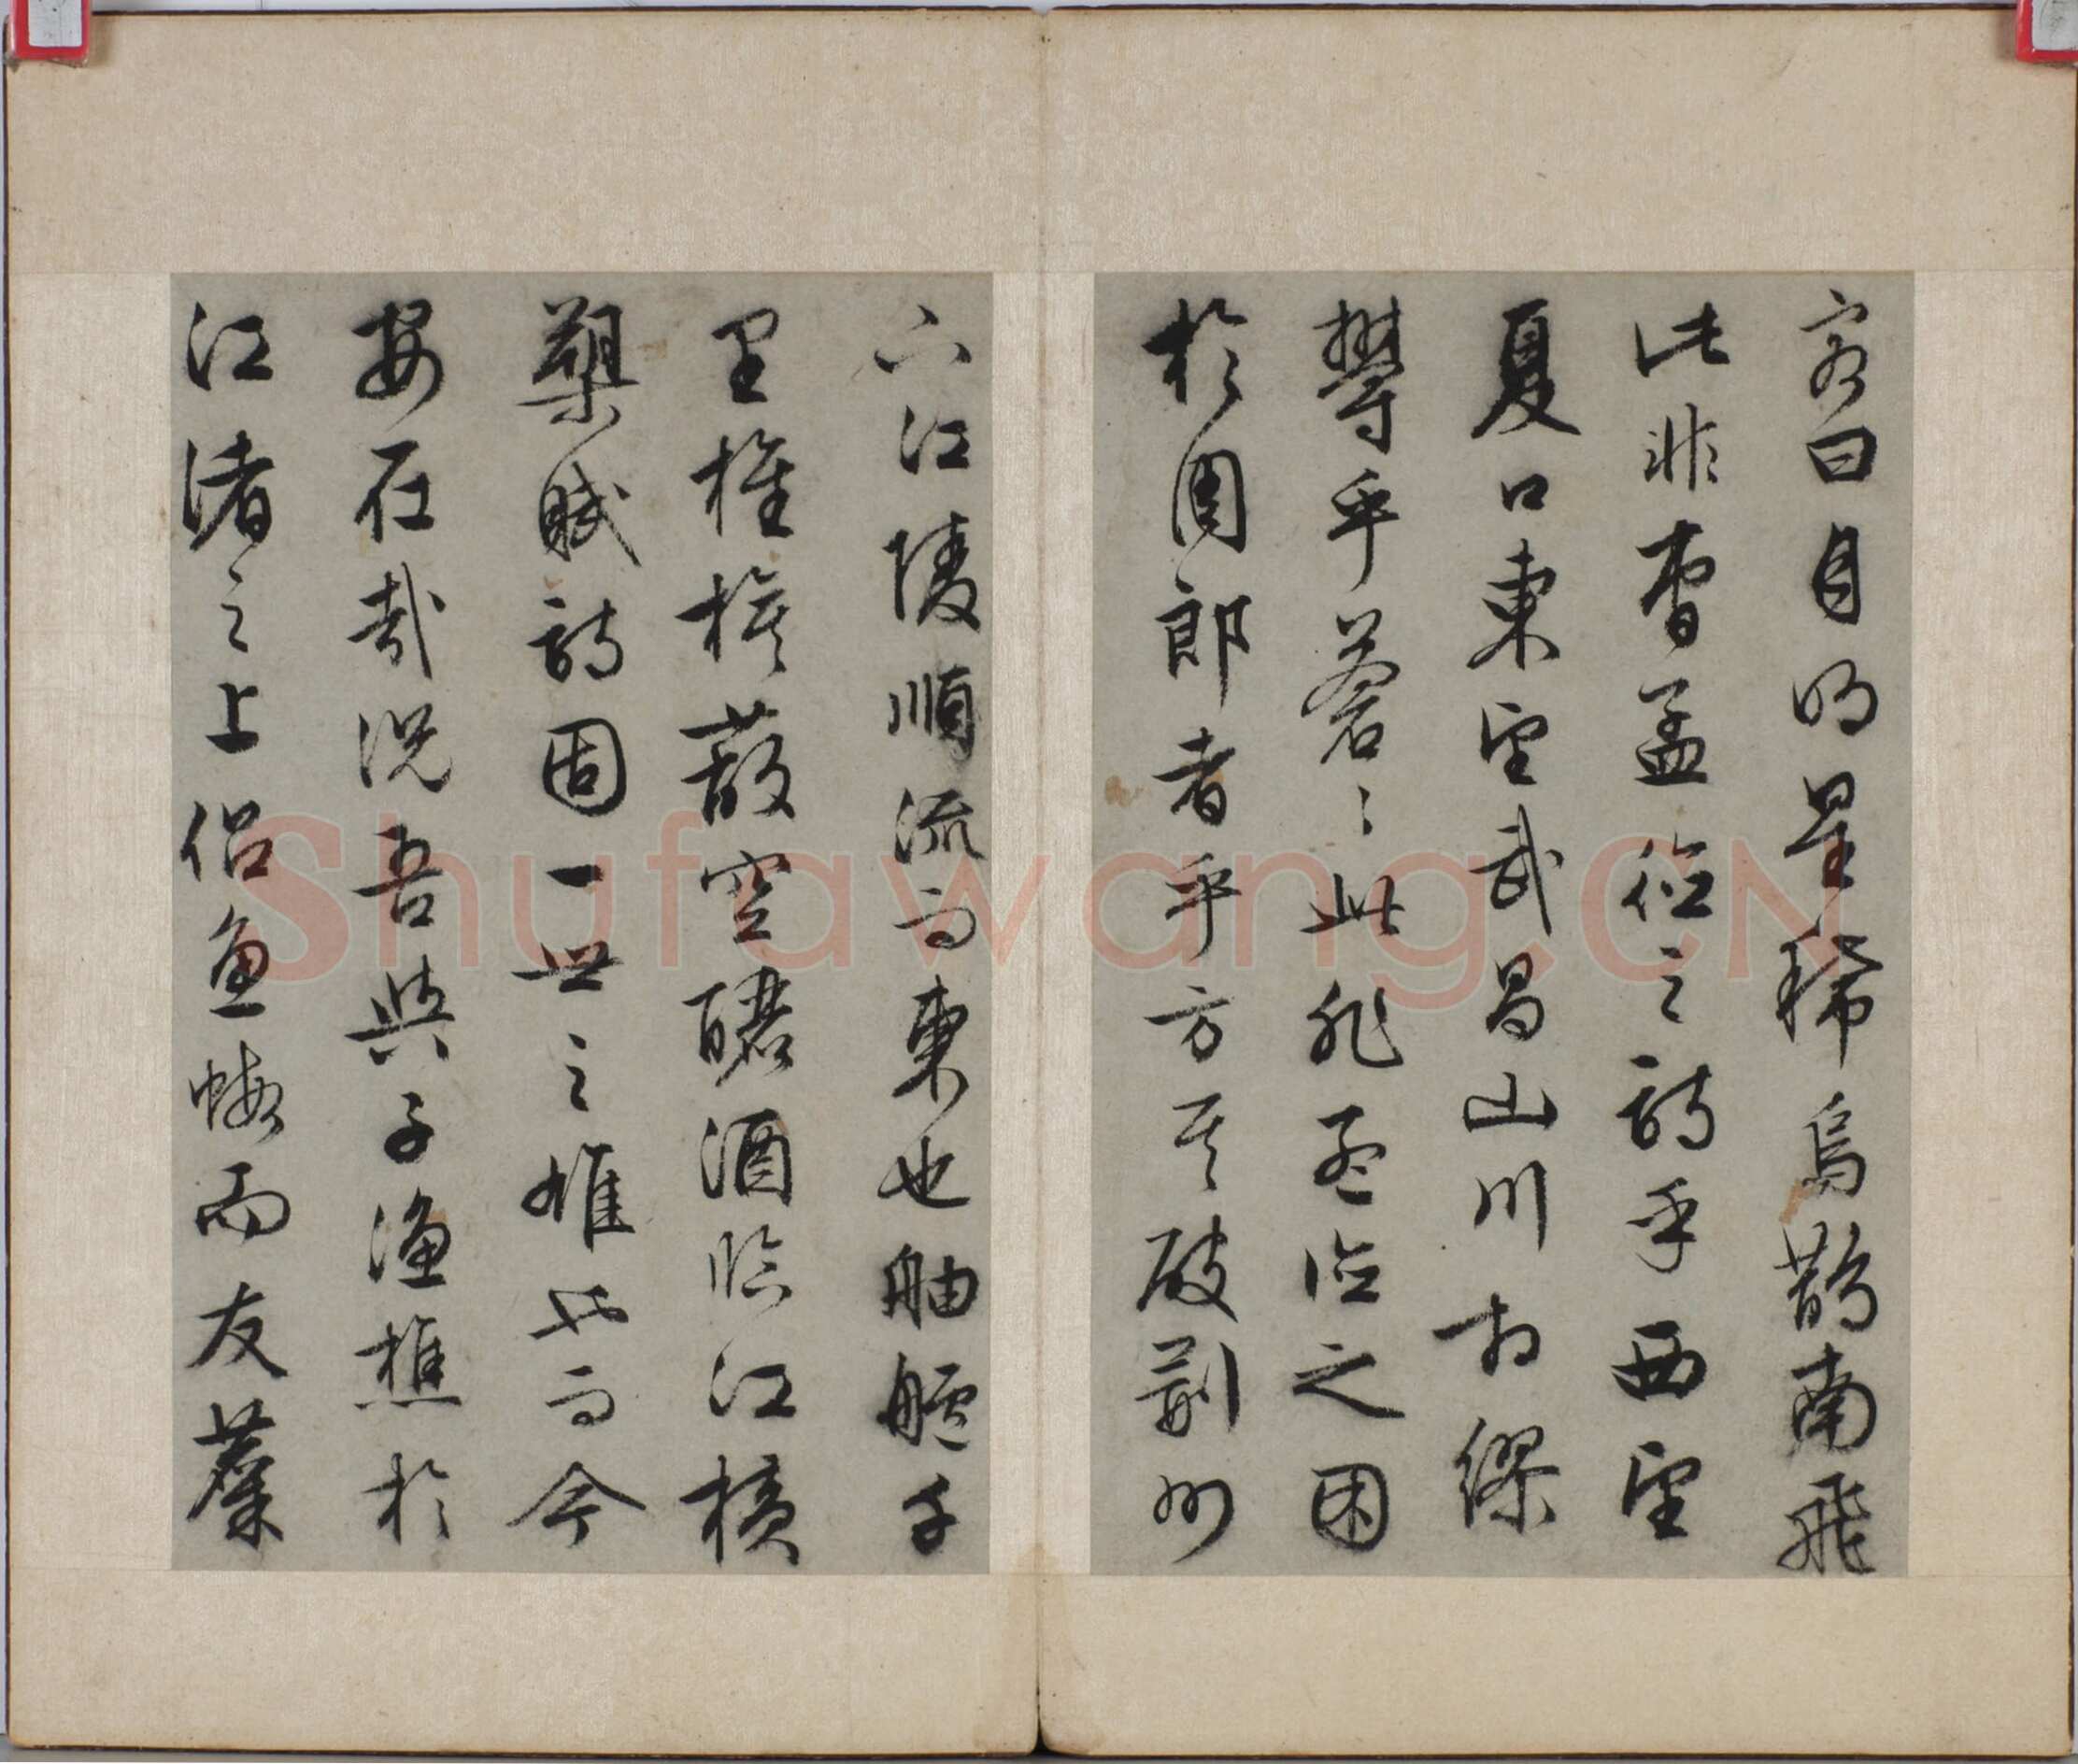 客曰月明星稀烏鵲南飛
此非曹孟德之詩乎西望
夏口東望武昌山川相繆
鬱乎蒼〻此非孟德之困
於周郎者乎方其破荊州
下江陵順流而東也舳艫千
里旌旗蔽空釃酒臨江橫
槊賦詩固一世之雄也而今
安在哉況吾與子漁樵於
江渚之上侶魚蝦而友麋
Shufawang.CN